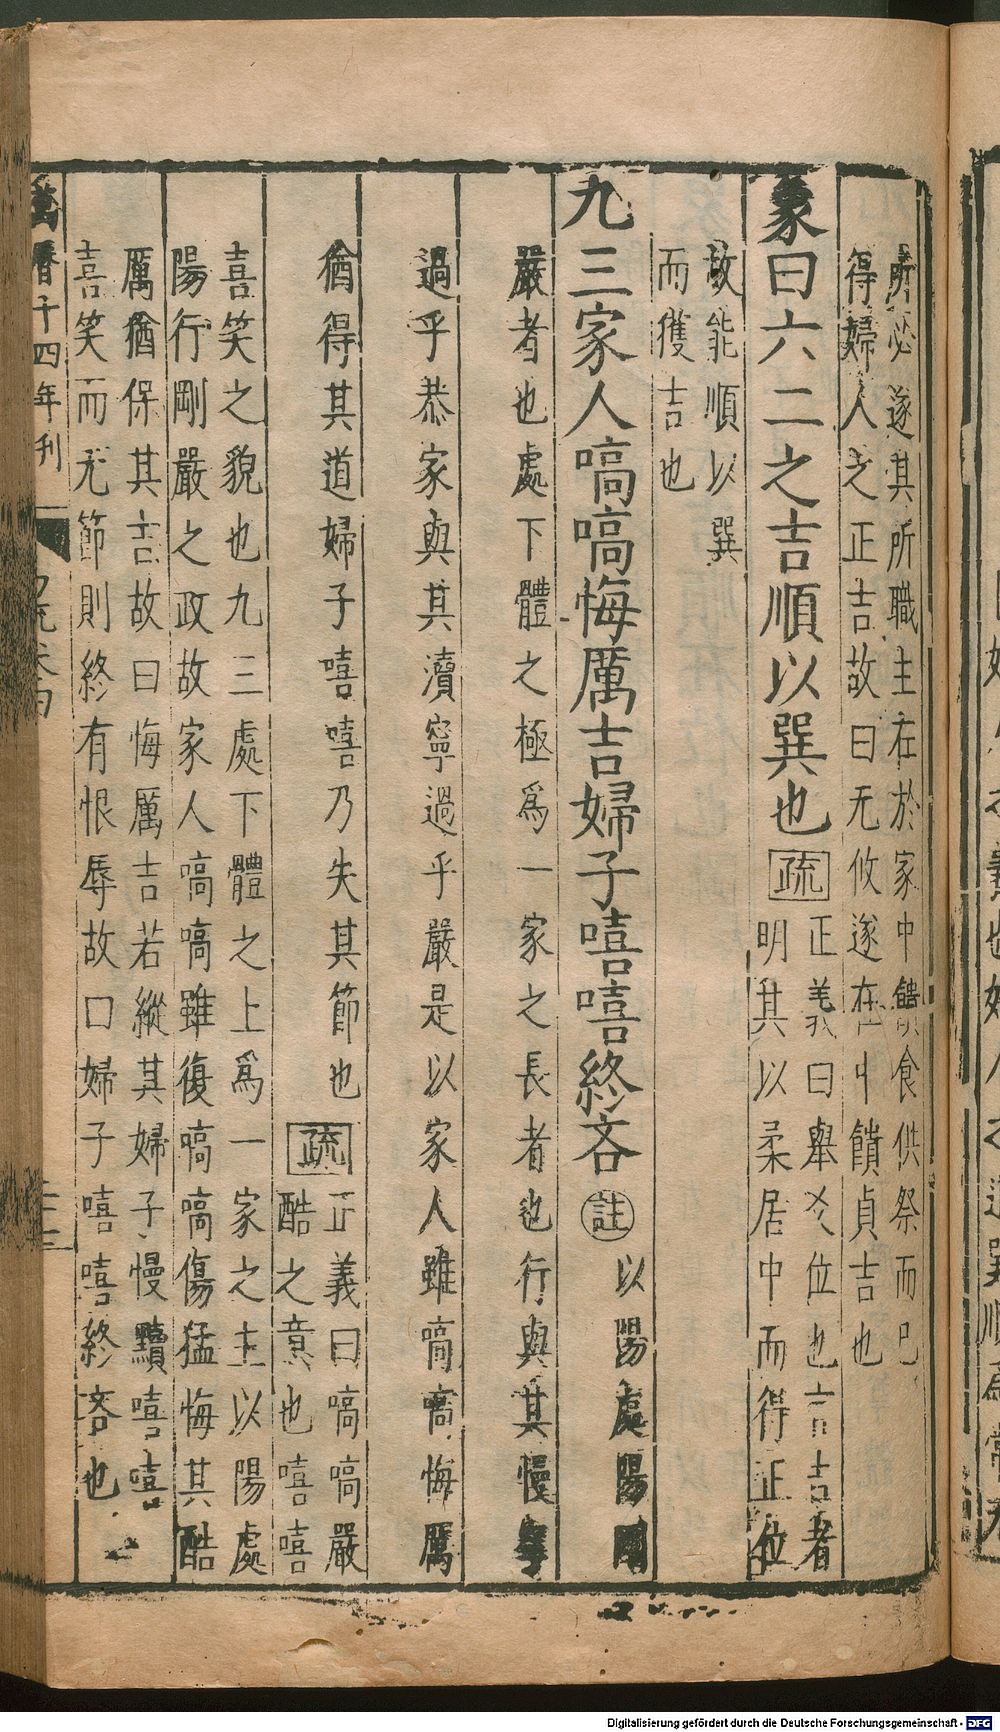 所必遂其所職主在於家中饋食供祭而已
得婦人之正吉故曰无攸遂在中饋貞吉也
象曰六二之吉順以巽也疏
正義曰舉爻位也言吉者
明其以柔居中而得正位
故能順以巽
而獲吉也
九三家人嗃嗃悔厲吉婦子嘻嘻終吝註
以陽處陽剛
嚴者也處下體之極爲一家之長者也行與其慢寧
過乎恭家與其瀆寧過乎嚴是以家人雖嗃嗃悔厲
猶得其道婦子嘻嘻乃失其節也疏
正義曰嗃嗃嚴
酷之意也嘻嘻
喜笑之貌也九三處下體之上爲一家之主以陽處
陽行剛嚴之政故家人嗃嗃雖復嗃嗃傷猛悔其酷
厲猶保其吉故曰悔厲吉若縱其婦子慢黷嘻嘻
喜笑而无節則終有恨辱故曰婦子嘻嘻終吝也
萬曆十四年刊
Digitalisierung gefördert durch die Deutsche Forschungsgemeinschaft - DFG